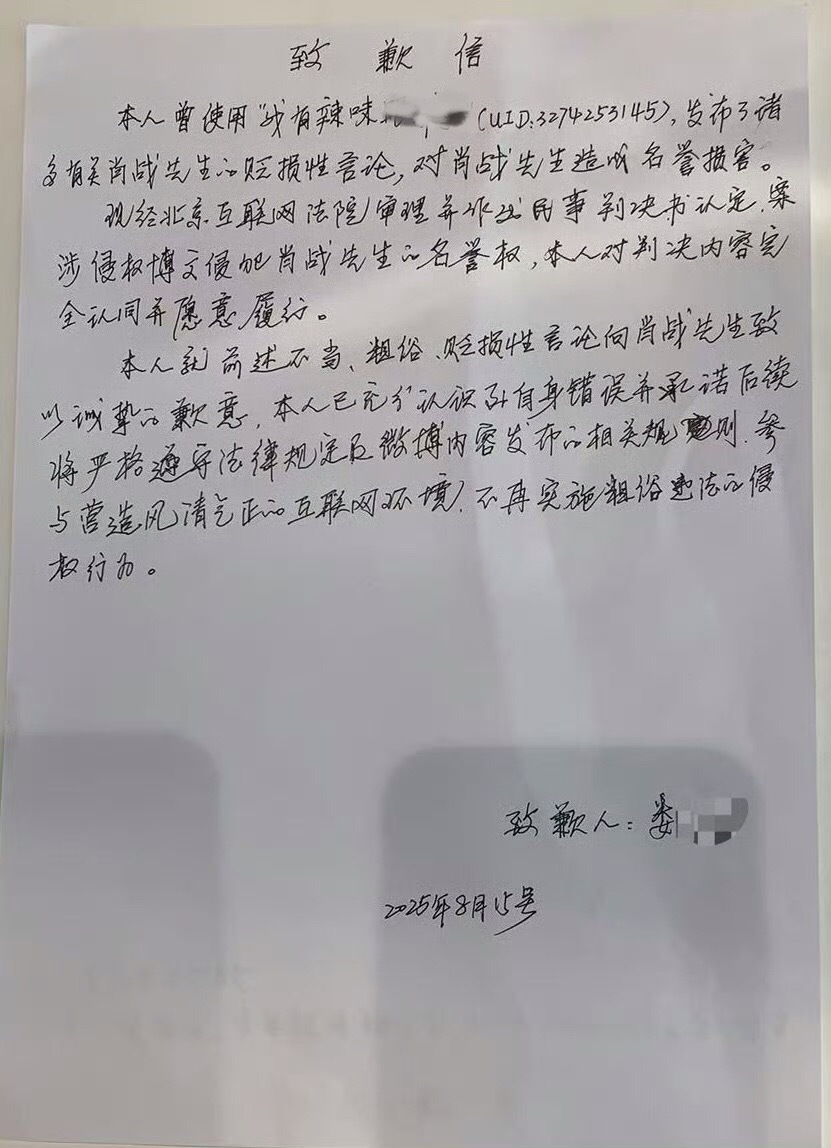 致歉信
本人曾使用“战有辣味 (UID:3274253145),发布了诸
多有关肖战先生的贬损性言论,对肖战先生造成名誉损害。
现经北京互联网法院审理并作出民事判决书认定,案
涉侵权博文侵犯肖战先生的名誉权,本人对判决内容完
全认同并愿意履行。
本人就前述不当、粗俗、贬损性言论向肖战先生致
以诚挚的歉意,本人已充分认识到自身错误并承诺后续
将严格遵守法律规定及微博内容发布的相关规则,参
与营造风清气正的互联网环境,不再实施粗俗违法的侵
权行为。
致歉人:娄
2025年8月15号